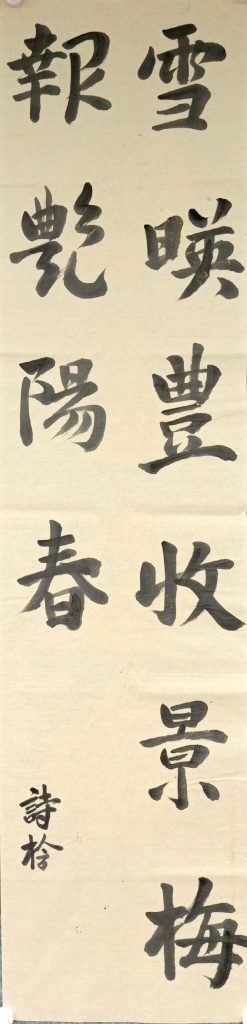 雪暎豐收景梅
報艷陽春
詩柃